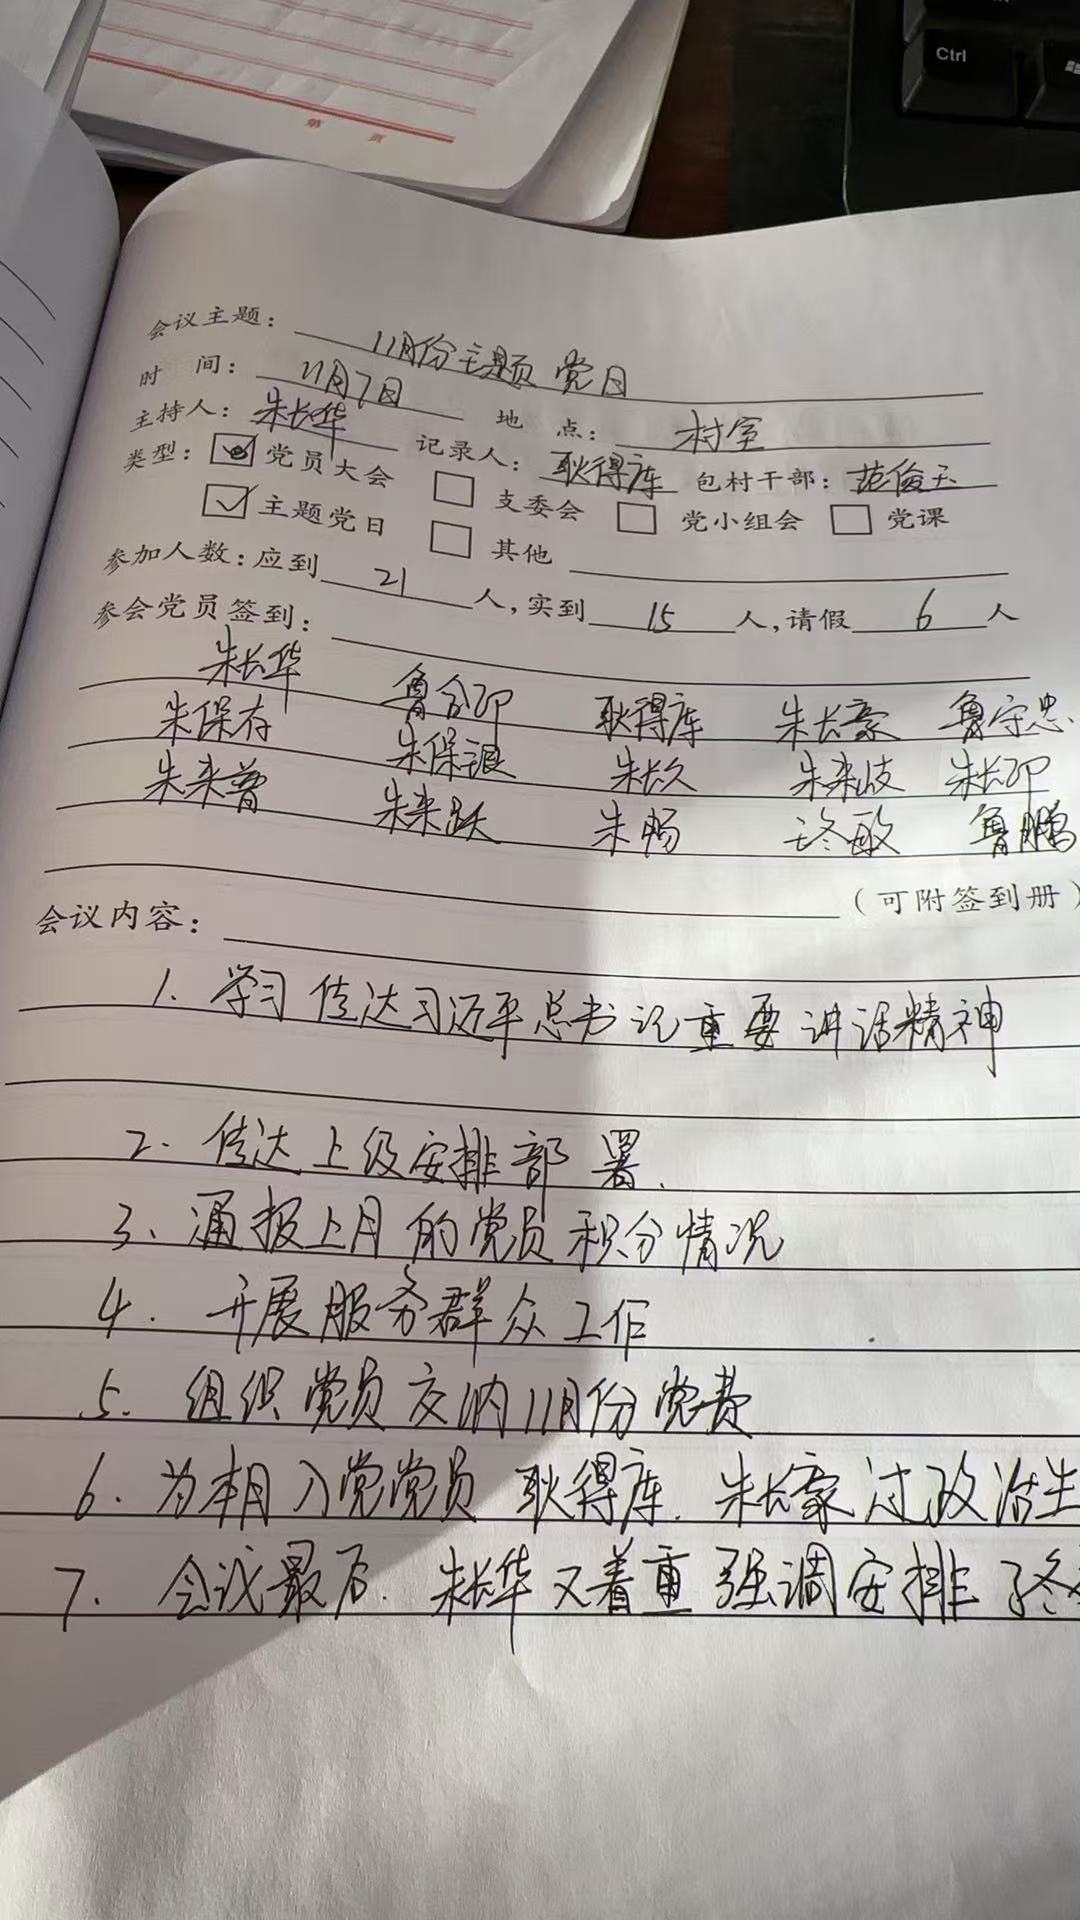 Ctrl
第 页
会议主题： 11月份主题党日
时 间： 11月7日 地 点： 村室
主持人： 朱长华 记录人： 耿得库 包村干部： 范俊玉
类型： ☑ 党员大会 □ 支委会 □ 党小组会 □ 党课
☑ 主题党日 □ 其他
参加人数：应到 21 人，实到 15 人，请假 6 人
参会党员签到：
朱长华 鲁合印 耿得库 朱长豪 鲁守忠
朱保存 朱保银 朱长久 朱来歧 朱长印
朱来曾 朱来跃 朱畅 敏 鲁鹏
（可附签到册）
会议内容：
1. 学习传达习近平总书记重要讲话精神
2. 传达上级安排部署.
3. 通报上月的党员积分情况
4. 开展服务群众工作
5. 组织党员交纳11月份党费
6. 为本月入党党员耿得库.朱长豪过政治生
7. 会议最后.朱长华又着重强调安排了冬